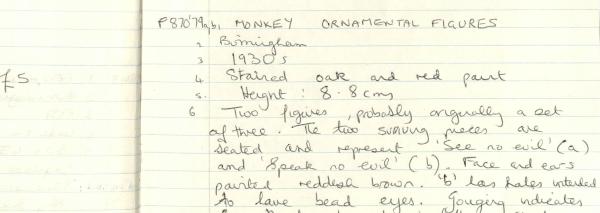 F870'79a,b, MONKEY ORNAMENTAL FIGURES
2 Birmingham
3 1930's
4 Stained oak and red paint
5. Height: 8.8 cms
6 Two figures, probably originally a set
of three. The two surviving pieces are
seated and represent 'See no evil' (a)
and 'Speak no evil' (b). Face and ears
painted reddish brown. 'b' has holes intended
to have bead eyes. Gouging indicates